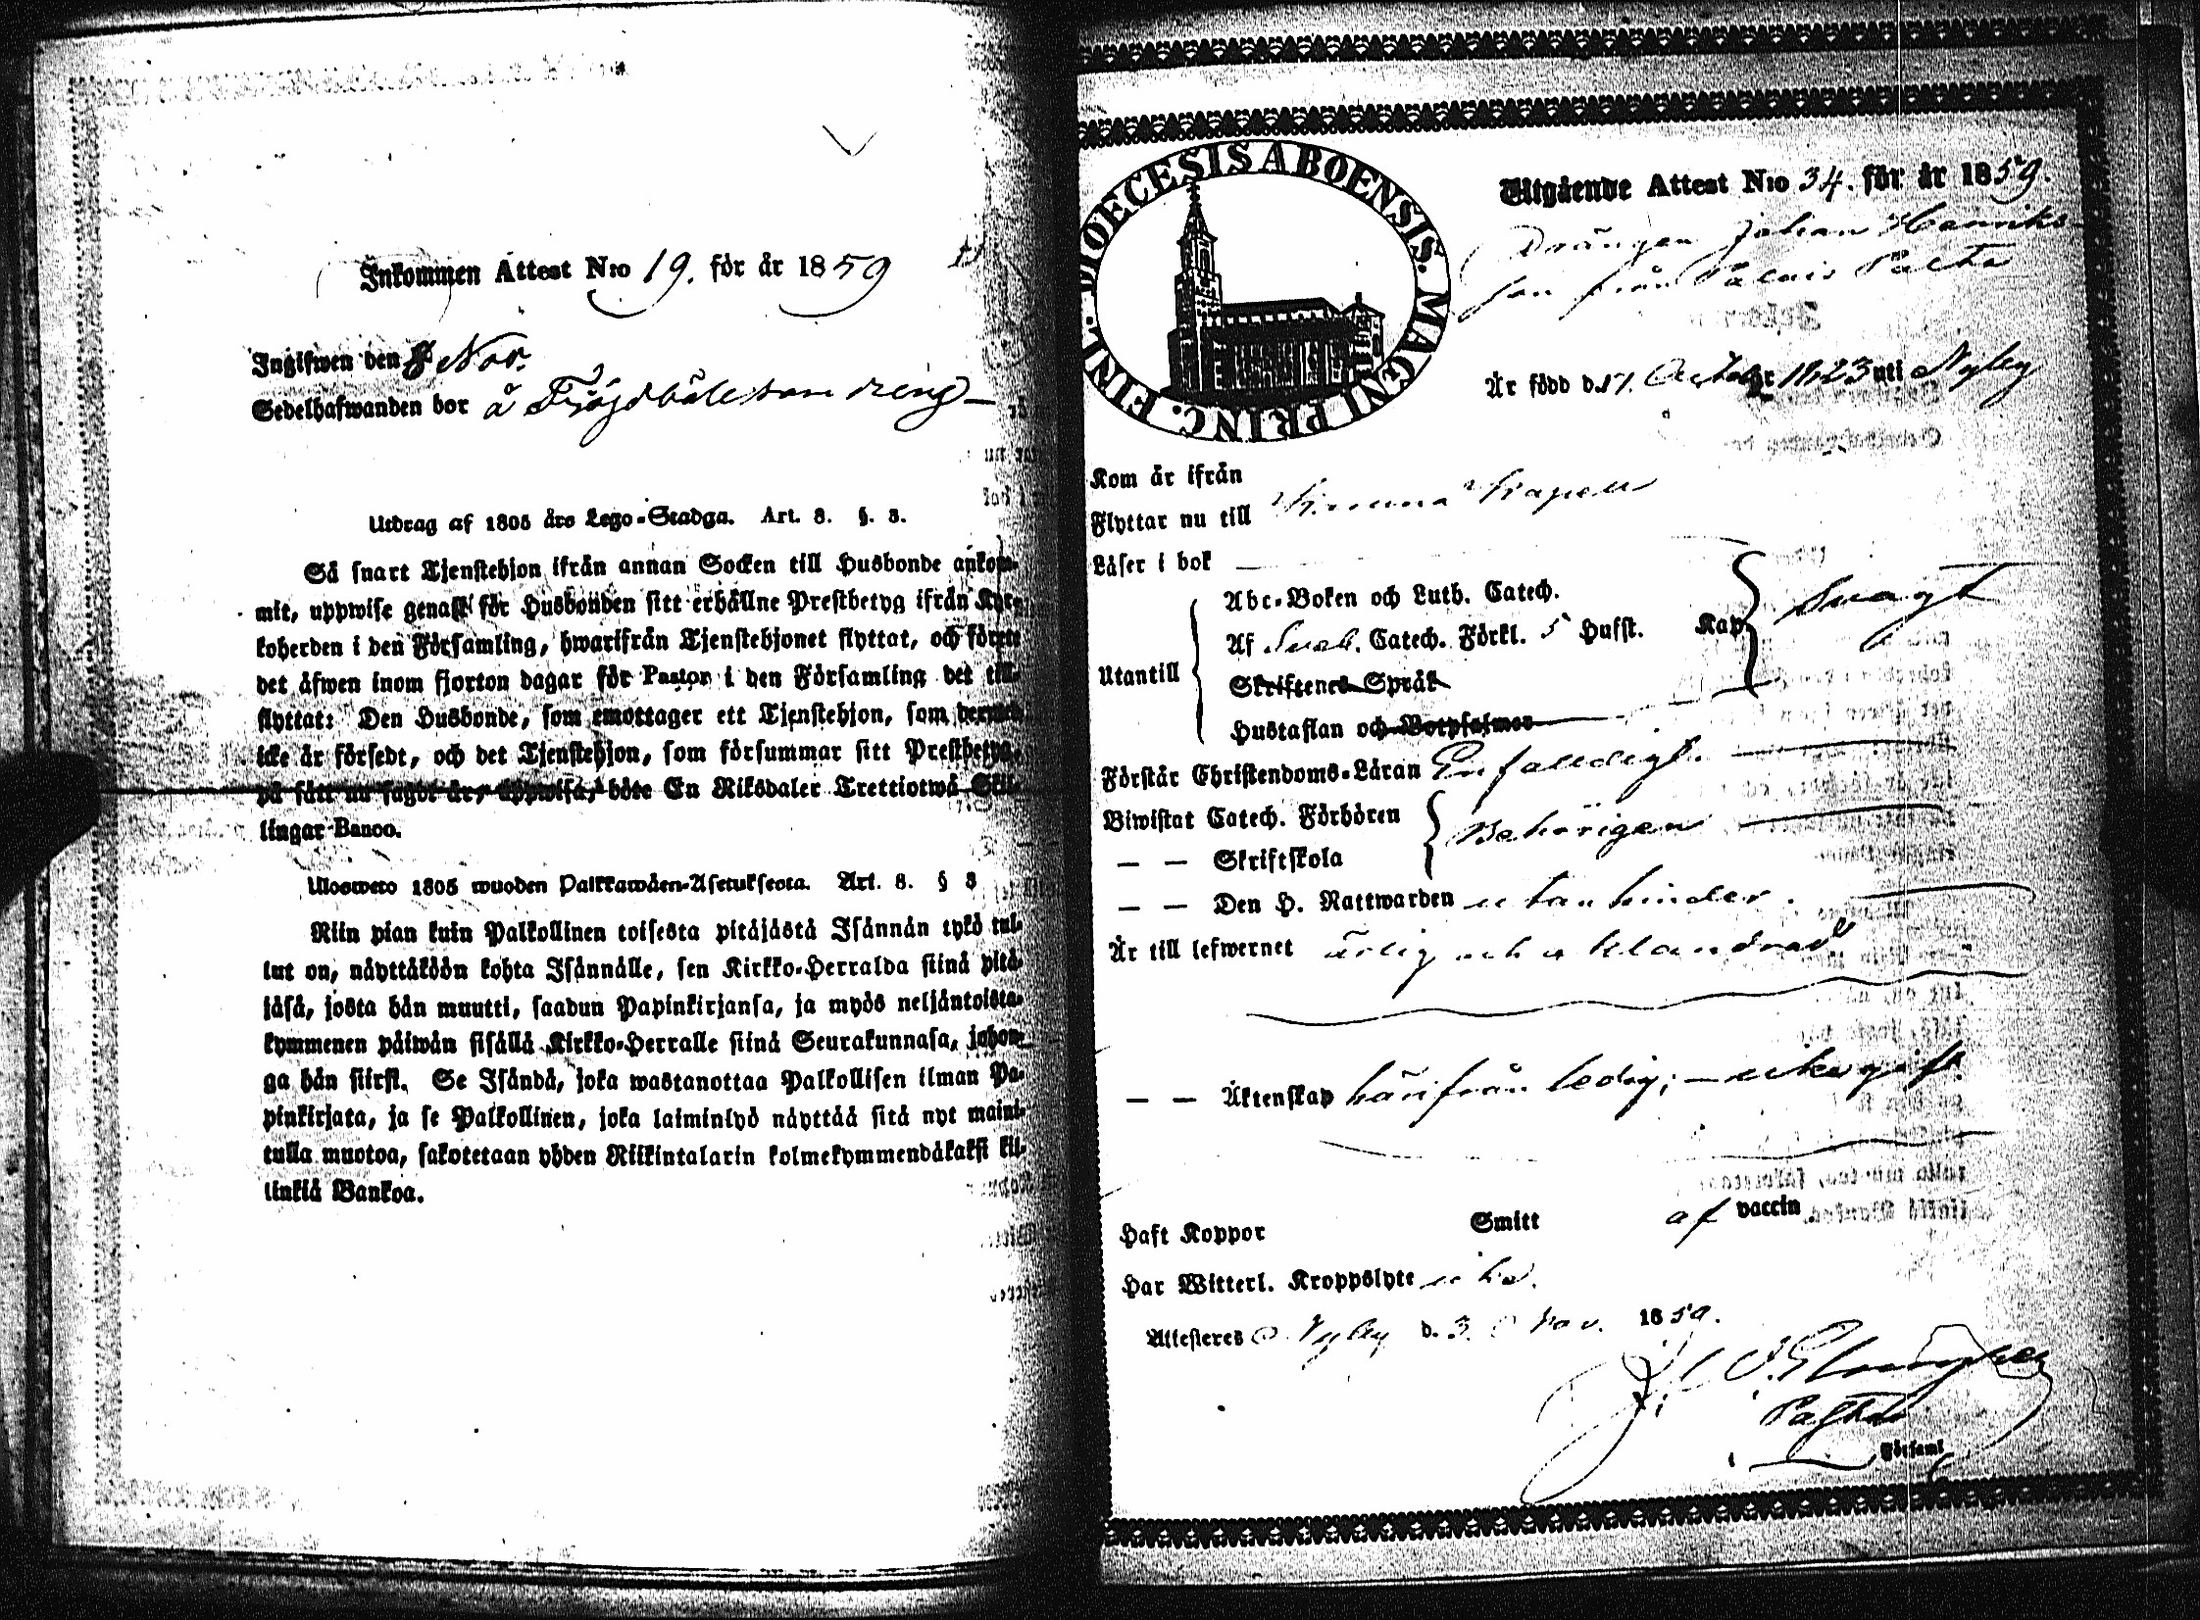 Inkommen Attest N:o 19. för år 1859
Ingifwen den 8 Nov.
Sedelhafwanden bor å Fröjdböle som dreng
Utdrag af 1805 års Lego-Stadga. Art. 8. §. 3.
Så snart Tjenstehjon ifrån annan Socken till Husbonde ankom-
mit, uppwise genast för Husbonden sitt erhållne Prestbetyg ifrån Kyr-
koherden i den Församling, hwarifrån Tjenstehjonet flyttat, och förete
det äfwen inom fjorton dagar för Pastor i den Församling det till-
flyttat: Den Husbonde, som emottager ett Tjenstehjon, som dermed
icke är försedt, och det Tjenstehjon, som försummar sitt Prestbetyg,
på sätt nu sagdt är, uppwisa, böte En Riksdaler Trettiotwå Skil-
lingar Banco.
Ulosweto 1805 wuoden Palkkawäen-Asetuksesta. Art. 8. § 3
Niin pian kuin Palkollinen toisesta pitäjästä Isännän tykö tul-
lut on, näyttäköön kohta Isännälle, sen Kirkko-Herralda siinä pitä-
jäsä, josta hän muutti, saadun Papinkirjansa, ja myös neljäntoista-
kymmenen päiwän sisällä Kirkko-Herralle siinä Seurakunnasa, johon-
ga hän siirsi. Se Isändä, joka wastanottaa Palkollisen ilman Pa-
pinkirjata, ja se Palkollinen, joka laiminlyö näyttää sitä nyt maini-
tulla muotoa, sakotetaan yhden Riikintalarin kolmekymmendäkaksi kil-
linkiä Bankoa.
DIOECESIS ABOENSIS. MAGNI PRINC. FINL.
Utgående Attest N:o 34. för år 1859.
Drängen Johan Henriks
son från
Är född d. 17. October 1823 uti Nyby
Kom år ifrån
Flyttar nu till Kimito Kapell
Läser i bok
Abc-Boken och Luth. Catech.
Af Sveb. Catech. Förkl. 5 Husst. Kap Svagt
Utantill
Skriftenes Språk
Hustaflan och Botpsalmer
Förstår Christendoms-Läran Enfaldigt.
Biwistat Catech. Förhören Behörigen
— — Skriftskola
— — Den H. Nattwarden utan hinder.
Är till lefwernet ärlig och oklandrad
— — Äktenskap härifrån ledig; — icke gift.
Haft Koppor Smitt af vaccin
Har Witterl. Kroppslyte icke.
Attesteres Nyby d. 3 Nov. 1859.
Pastor
Församl